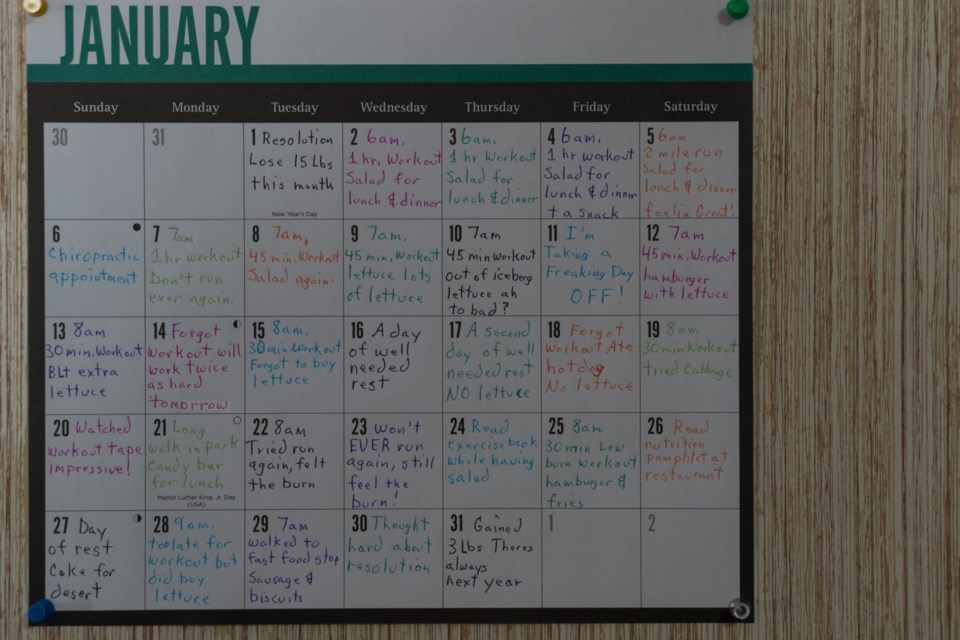 JANUARY
Sunday Monday Tuesday Wednesday Thursday Friday Saturday
30
31
1 Resolution
Lose 15 Lbs
this month
New Year's Day
2 6am,
1 hr. Workout
Salad for
lunch & dinner
3 6am.
1 hr Workout
Salad for
lunch & dinner
4 6am.
1 hr workout
Salad for
lunch & dinner
+ a snack
5 6am
2 mile run
Salad for
lunch & dinner
feelin Great!
6
Chiropractic
appointment
7 7am
1 hr workout
Don't run
ever again.
8 7am,
45 min. Workout
Salad again.
9 7am.
45 min. Workout
lettuce lots
of lettuce
10 7am
45 min workout
out of iceberg
lettuce ah
to bad?
11 I'm
Taking a
Freaking Day
OFF!
12 7am
45 min. Workout
hamburger
with lettuce
13 8am
30 min. Workout
BLt extra
lettuce
14 Forgot
workout will
work twice
as hard
tomorrow
15 8am.
30 min Workout
Forgot to buy
lettuce
16 A day
of well
needed
rest
17 A second
day of well
needed rest
NO lettuce
18 Forgot
workout Ate
hotdog
No lettuce
19 8am
30 min Workout
tried Cabbage
20 Watched
workout tape
Impressive!
21 Long
walk in park
Candy bar
for lunch
Martin Luther King, Jr. Day
(USA)
22 8am
Tried run
again, felt
the burn
23 won't
EVER run
again, still
feel the
burn!
24 Read
exercise book
while having
Salad
25 8am
30 min Low
burn workout
hamburger &
fries
26 Read
nutrition
pamphlet at
restaurant
27 Day
of rest
Cake for
desert
28 9am.
too late for
workout but
did buy
lettuce
29 7am
walked to
fast food stop
Sausage &
biscuits
30 Thought
hard about
resolution
31 Gained
3 Lbs Theres
always
next year
1
2